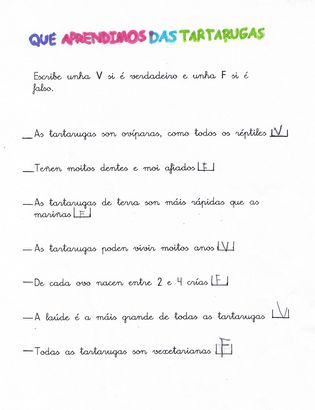 QUE APRENDIMOS DAS TARTARUGAS
Escribe unha V si é verdadeiro e unha F si é
falso.
— As tartarugas son ovíparas, como todos os réptiles V
— Tenen moitos dentes e moi afiados F
— As tartarugas de terra son máis rápidas que as
mariñas F
— As tartarugas poden vivir moitos anos V
— De cada ovo nacen entre 2 e 4 crías F
— A laúde é a máis grande de todas as tartarugas V
— Todas as tartarugas son vexetarianas F